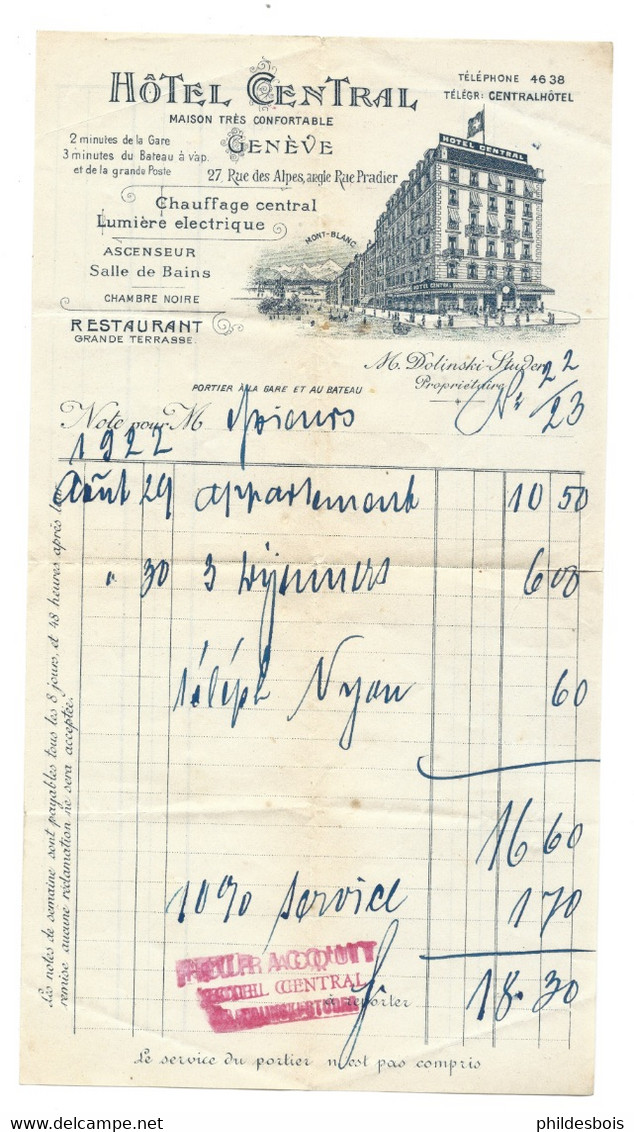 HÔTEL CENTRAL
MAISON TRÈS CONFORTABLE
GENÈVE
27, Rue des Alpes, angle Rue Pradier
TÉLÉPHONE 4638
TÉLÉGR: CENTRALHÔTEL
2 minutes de la Gare
3 minutes du Bateau à vap.
et de la grande Poste
Chauffage central
Lumière electrique
ASCENSEUR
Salle de Bains
CHAMBRE NOIRE
RESTAURANT
GRANDE TERRASSE.
HOTEL CENTRAL
MONT-BLANC
HOTEL CENTRAL
M. Dolinski-Studer
Propriétaire
PORTIER À LA GARE ET AU BATEAU
Nº 22/23
Note pour M
1922
Août 29 appartement 10 50
" 30 3 déjeuners 6 00
téléph Nyon 60
16 60
10% service 1 70
à reporter 18.30
POUR ACQUIT
HOTEL CENTRAL
DOLINSKI-STUDER
Le service du portier n'est pas compris
Les notes de semaine sont payables tous les 8 jours, et 48 heures après leur
remise aucune réclamation ne sera acceptée.
phildesbois